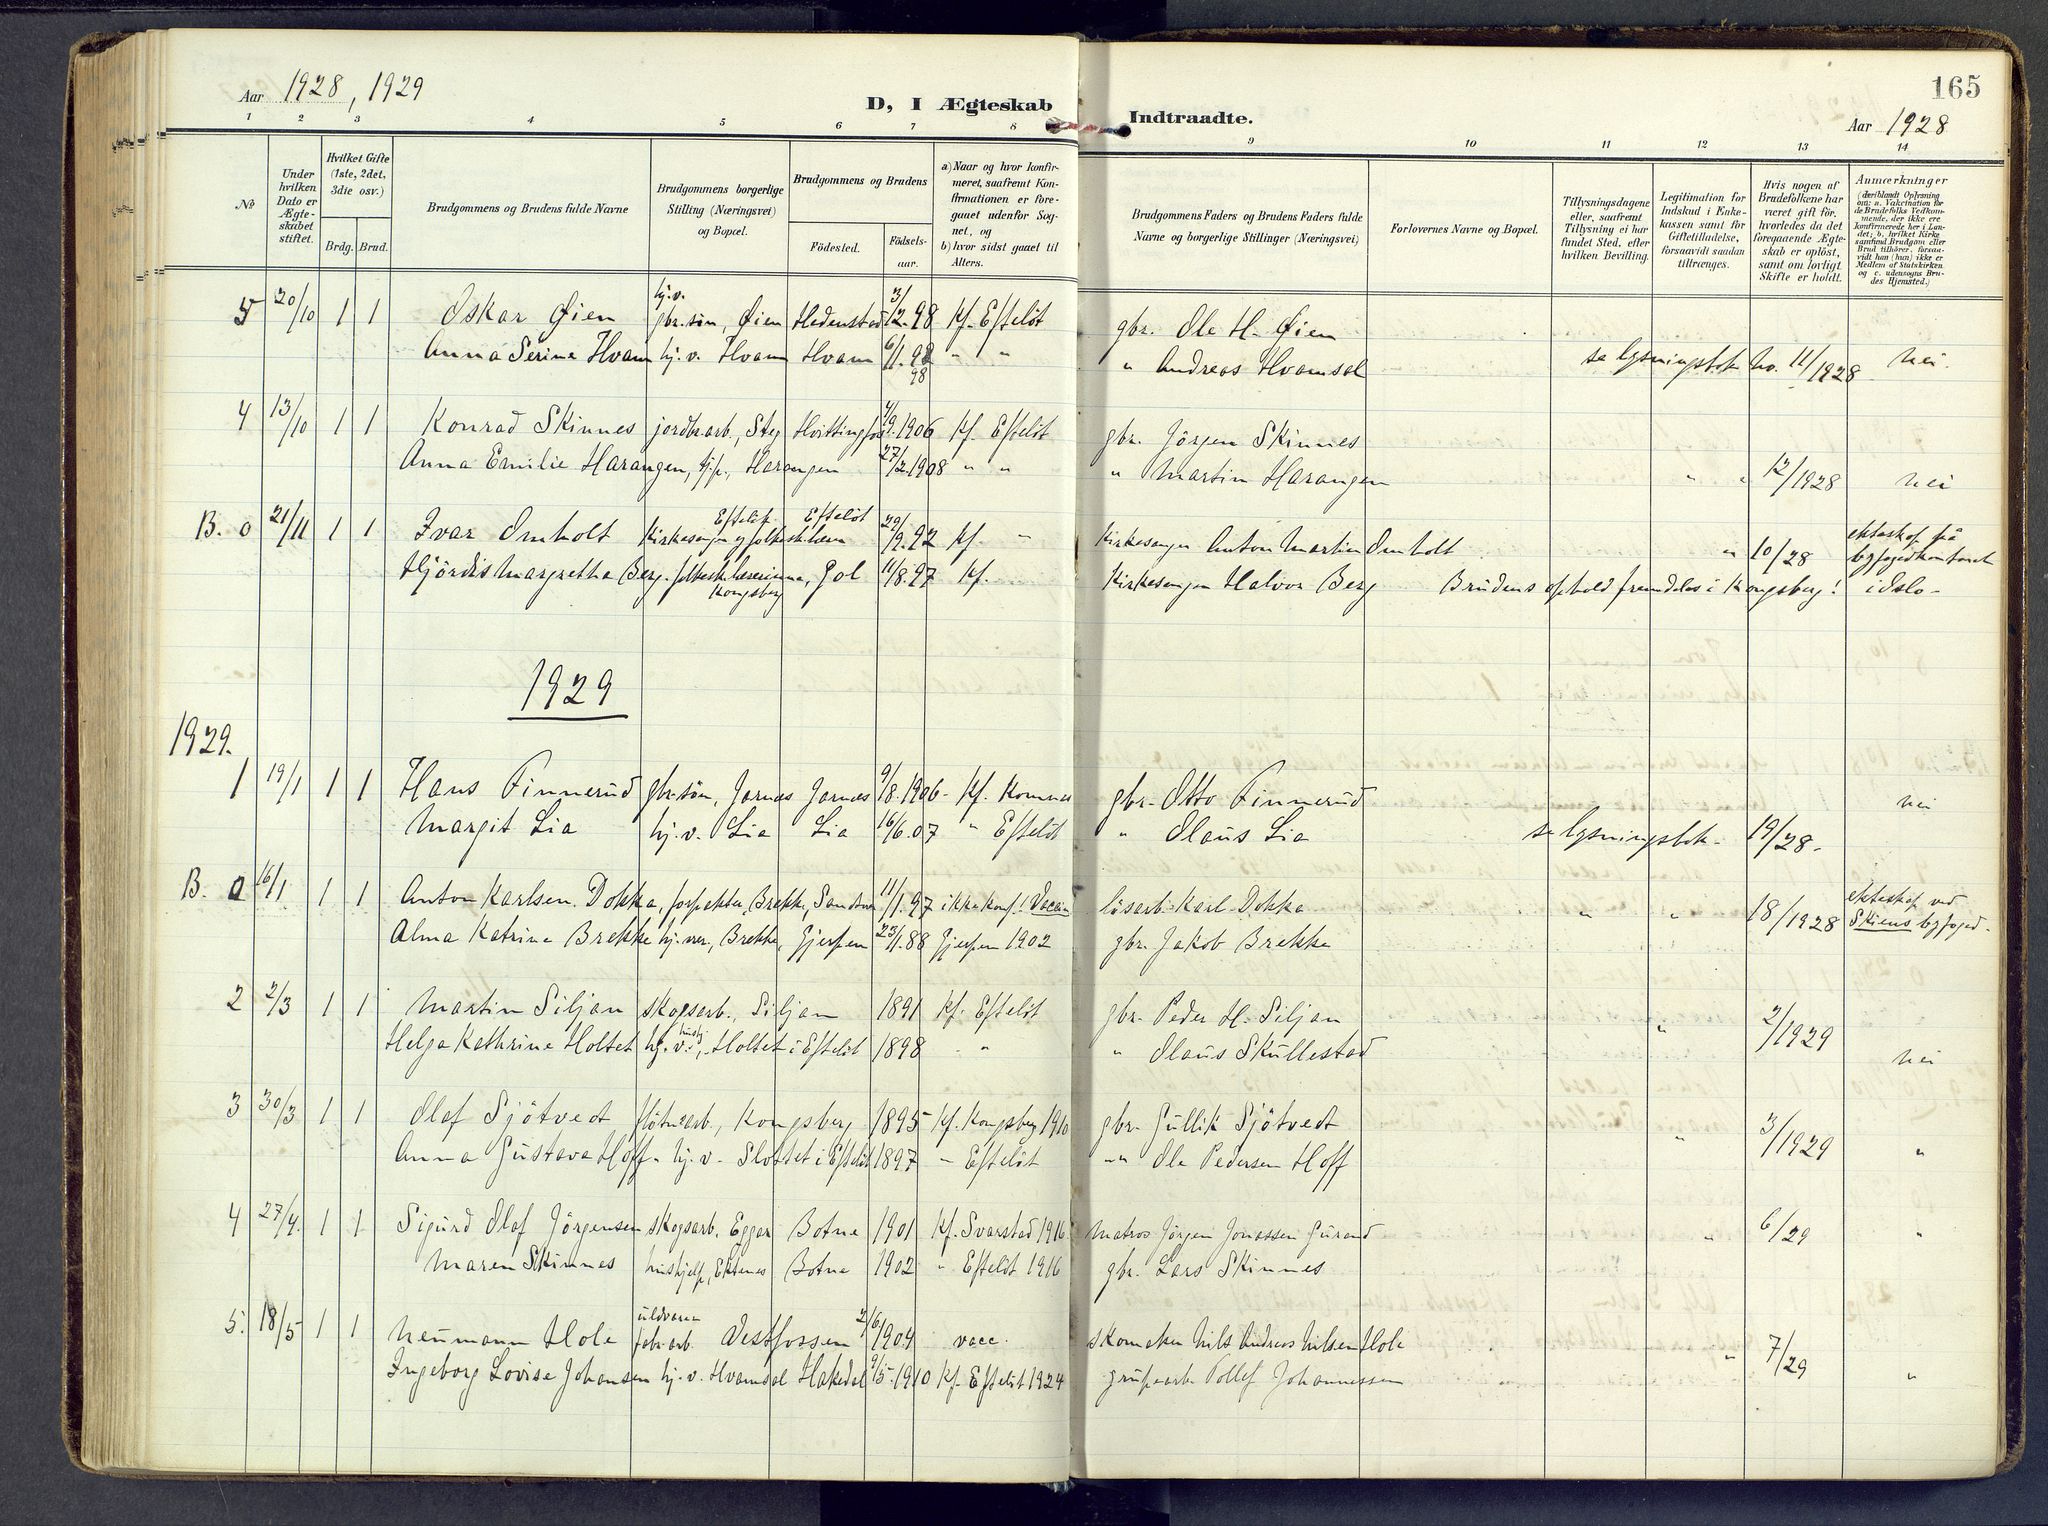 Aar 1928, 1929
D, I Ægteskab Indtraadte.
165
Aar 1928
1 2 3 4 5 6 7 8 9 10 11 12 13 14
No
Under hvilken Dato er Ægteskabet stiftet.
Hvilket Gifte (1ste, 2det, 3die osv.)
Brdg. Brud.
Brudgommens og Brudens fulde Navne
Brudgommens borgerlige Stilling (Næringsvei) og Bopæl.
Brudgommens og Brudens
Födested. Födselsaar.
a) Naar og hvor konfirmeret, saafremt Konfirmationen er foregaaet udenfor Sognet, og
b) hvor sidst gaaet til Alters.
Brudgommens Faders og Brudens Faders fulde Navne og borgerlige Stillinger (Næringsvei)
Forlovernes Navne og Bopæl.
Tillysningsdagene eller, saafremt Tillysning ei har fundet Sted, efter hvilken Bevilling.
Legitimation for Indskud i Enkekassen samt for Giftetilladelse, forsaavidt saadan tiltrænges.
Hvis nogen af Brudefolkene har været gift för, hvorledes da det foregaaende Ægteskab er oplöst, samt om lovligt Skifte er holdt.
Anmærkninger (deriblandt Oplysning om: a. Vakcination for de Brudefolks Vedkommende, der ikke ere konfirmerede her i Landet; b. hvilket Kirkesamfund Brudgom eller Brud tilhörer, forsaavidt han (hun) ikke er Medlem af Statskirken og c. udensogns Brudes Hjemsted.)
5 20/10 1 1 Oskar Øien gbr.sön, Øien Hedenstad 3/12.98 Kf. Efteløt gbr. Ole H. Øien
Anna Serine Hvam hj.v. Hvam Hvam 6/1.98 " " " Andreas Hvamsal se lysningsbok No. 11/1928 nei.
98
4 13/10 1 1 Konrad Skinnes jordbr.arb., Hvittingfos 4/9.1906 Kf. Efteløt gbr. Jörgen Skinnes
Anna Emilie Harangen, hj.p., Harangen 27/2.1908 " " " Martin Harangen " " 12/1928 nei
B. 0 21/11 1 1 Ivar Omholt Kirkesanger og folkesk.lærer Efteløt Efteløt 29/9.92 Kf. " Kirkesanger Anton Martin Omholt " 10/28 ekteskap på byfogedkontoret
Hjördis Margrethe Berg. folkesk.lærerinne, Gol 11/8.97 Kf. Kirkesanger Halvor Berg Brudens ophold fremdeles i Kongsberg! i Oslo-
Kongsberg
1929
1929.
1 19/1 1 1 Hans Finnerud gbr.sön, Jornes Jornes 9/8.1906- Kf. Komnes gbr. Otto Finnerud nei
Margit Lia hj.v. Lia Lia 16/6.07 " Efteløt " Olaus Lia se lysningsbok- 19/28-
B. 0 16/1 1 1 Anton Karlsen Dokka, forpakter, Brekke, 11/1.97 ikke konf! lösarb. Karl Dokka " " 18/1928 ekteskap ved Skiens byfoged-
Alma Katrine Brekke Brekke, Gjerpen 23/1.88 Gjerpen 1902 gbr. Jakob Brekke
2 2/3 1 1 Martin Siljan skogsarb., Siljan 1891 Kf. Efteløt gbr. Peder H. Siljan " 2/1929
Helga Kathrine Holtet hj.v., Holtet i Efteløt 1898 " " Olaus Skullestad nei
3 30/3 1 1 Olaf Sjötvedt flötn.arb., Kongsberg 1895 Kf. Kongsberg 1910 gbr. Gullik Sjötvedt " 3/1929
Anna Gustava Hoff- hj.v. Slottet i Efteløt 1897 " Efteløt " Ole Pedersen Hoff "
4 27/4. 1 1 Sigurd Olaf Jörgensen skogsarb. Eggar Botne 1901 Kf. Svarstad 1916 Matros Jörgen Jonassen " 6/29 "
Maren Skinnes hushjelp, Botne 1902 " Efteløt 1916 gbr. Lars Skinnes
5. 18/5 1 1 Neumann Hole uldvarefabr.arb. Vestfossen 2/6 1904 vacc. skomaker Nils Andreas Nilsen Hole " " 7/29
Ingeborg Lovise Johansen hj.v. Hvamsal Hakedal 9/5.1910 Kf. Efteløt 1924 grubearb. Tollef Johannessen "